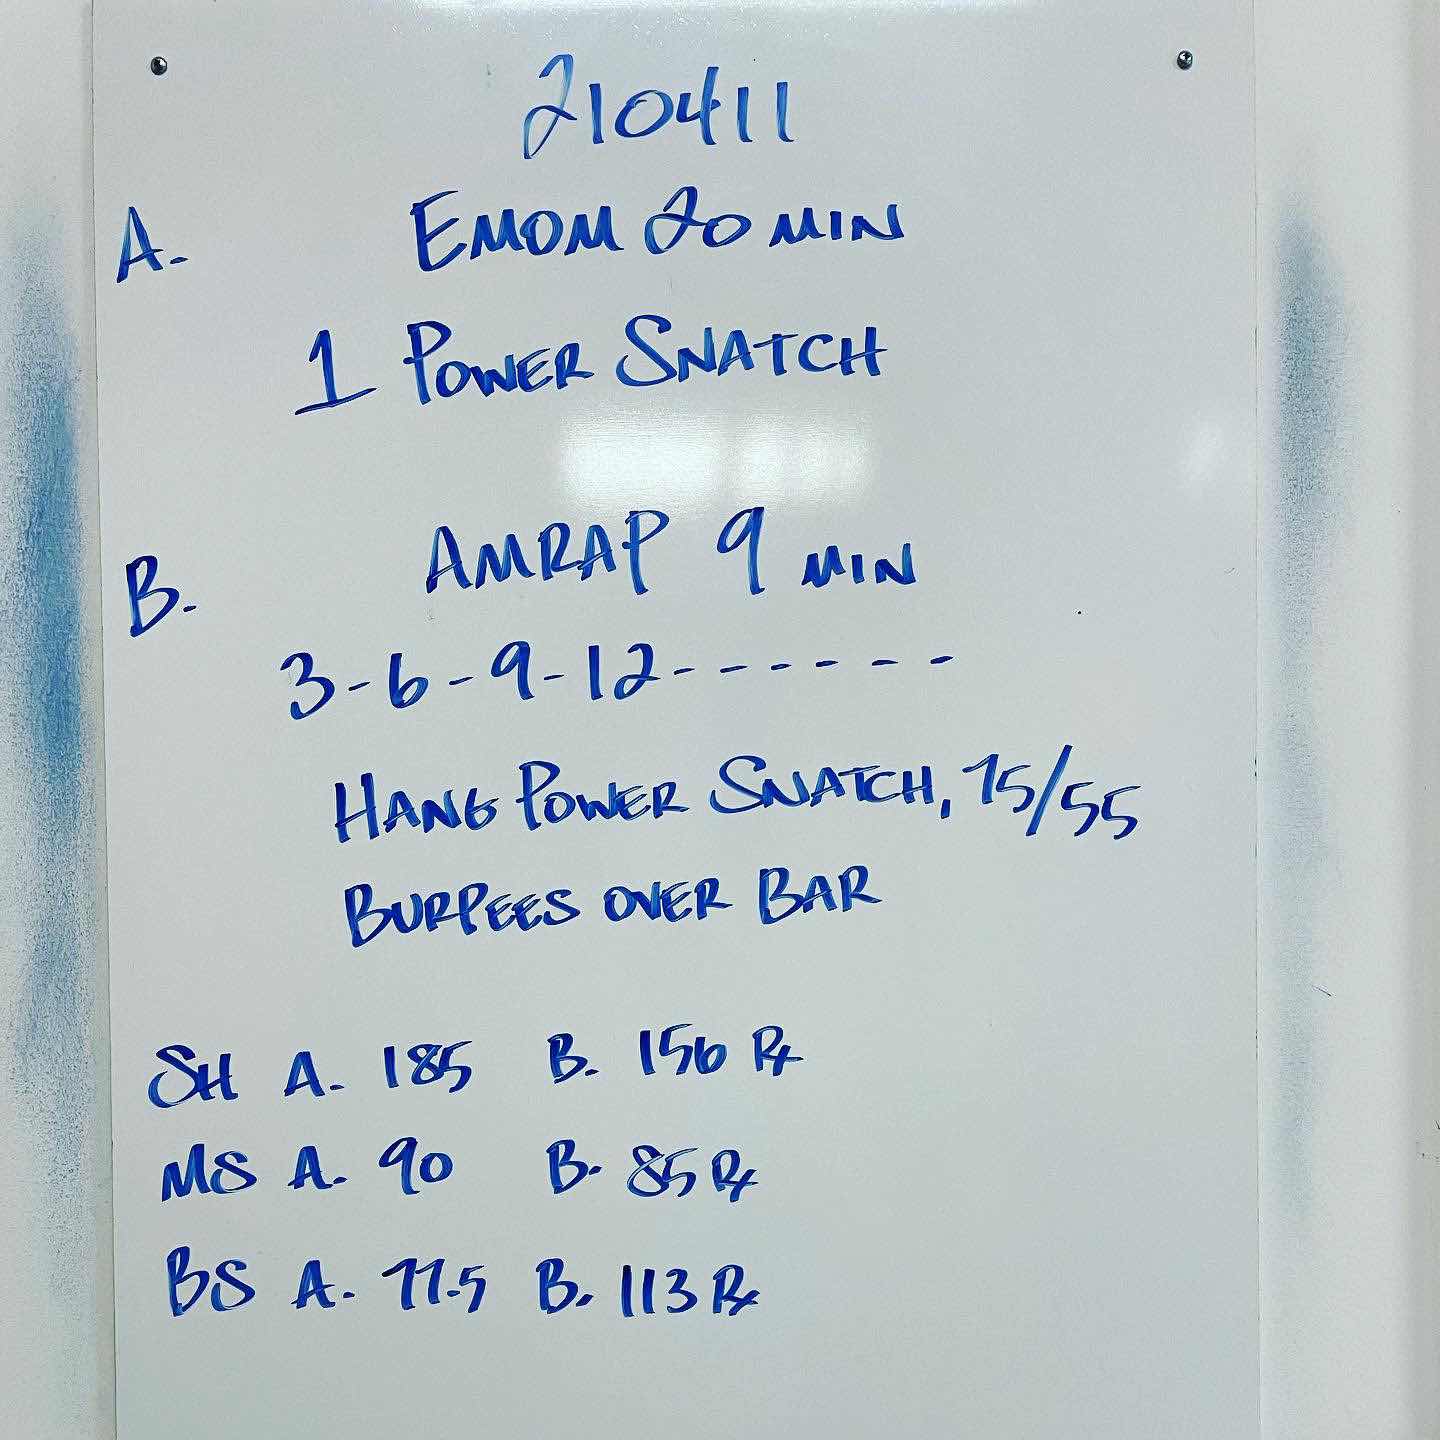 210411
A. EMOM 20 MIN
1 POWER SNATCH
B. AMRAP 9 MIN
3-6-9-12------
HANG POWER SNATCH, 75/55
BURPEES OVER BAR
SH A. 185 B. 156 Rx
MS A. 90 B. 85 Rx
BS A. 77.5 B. 113 Rx